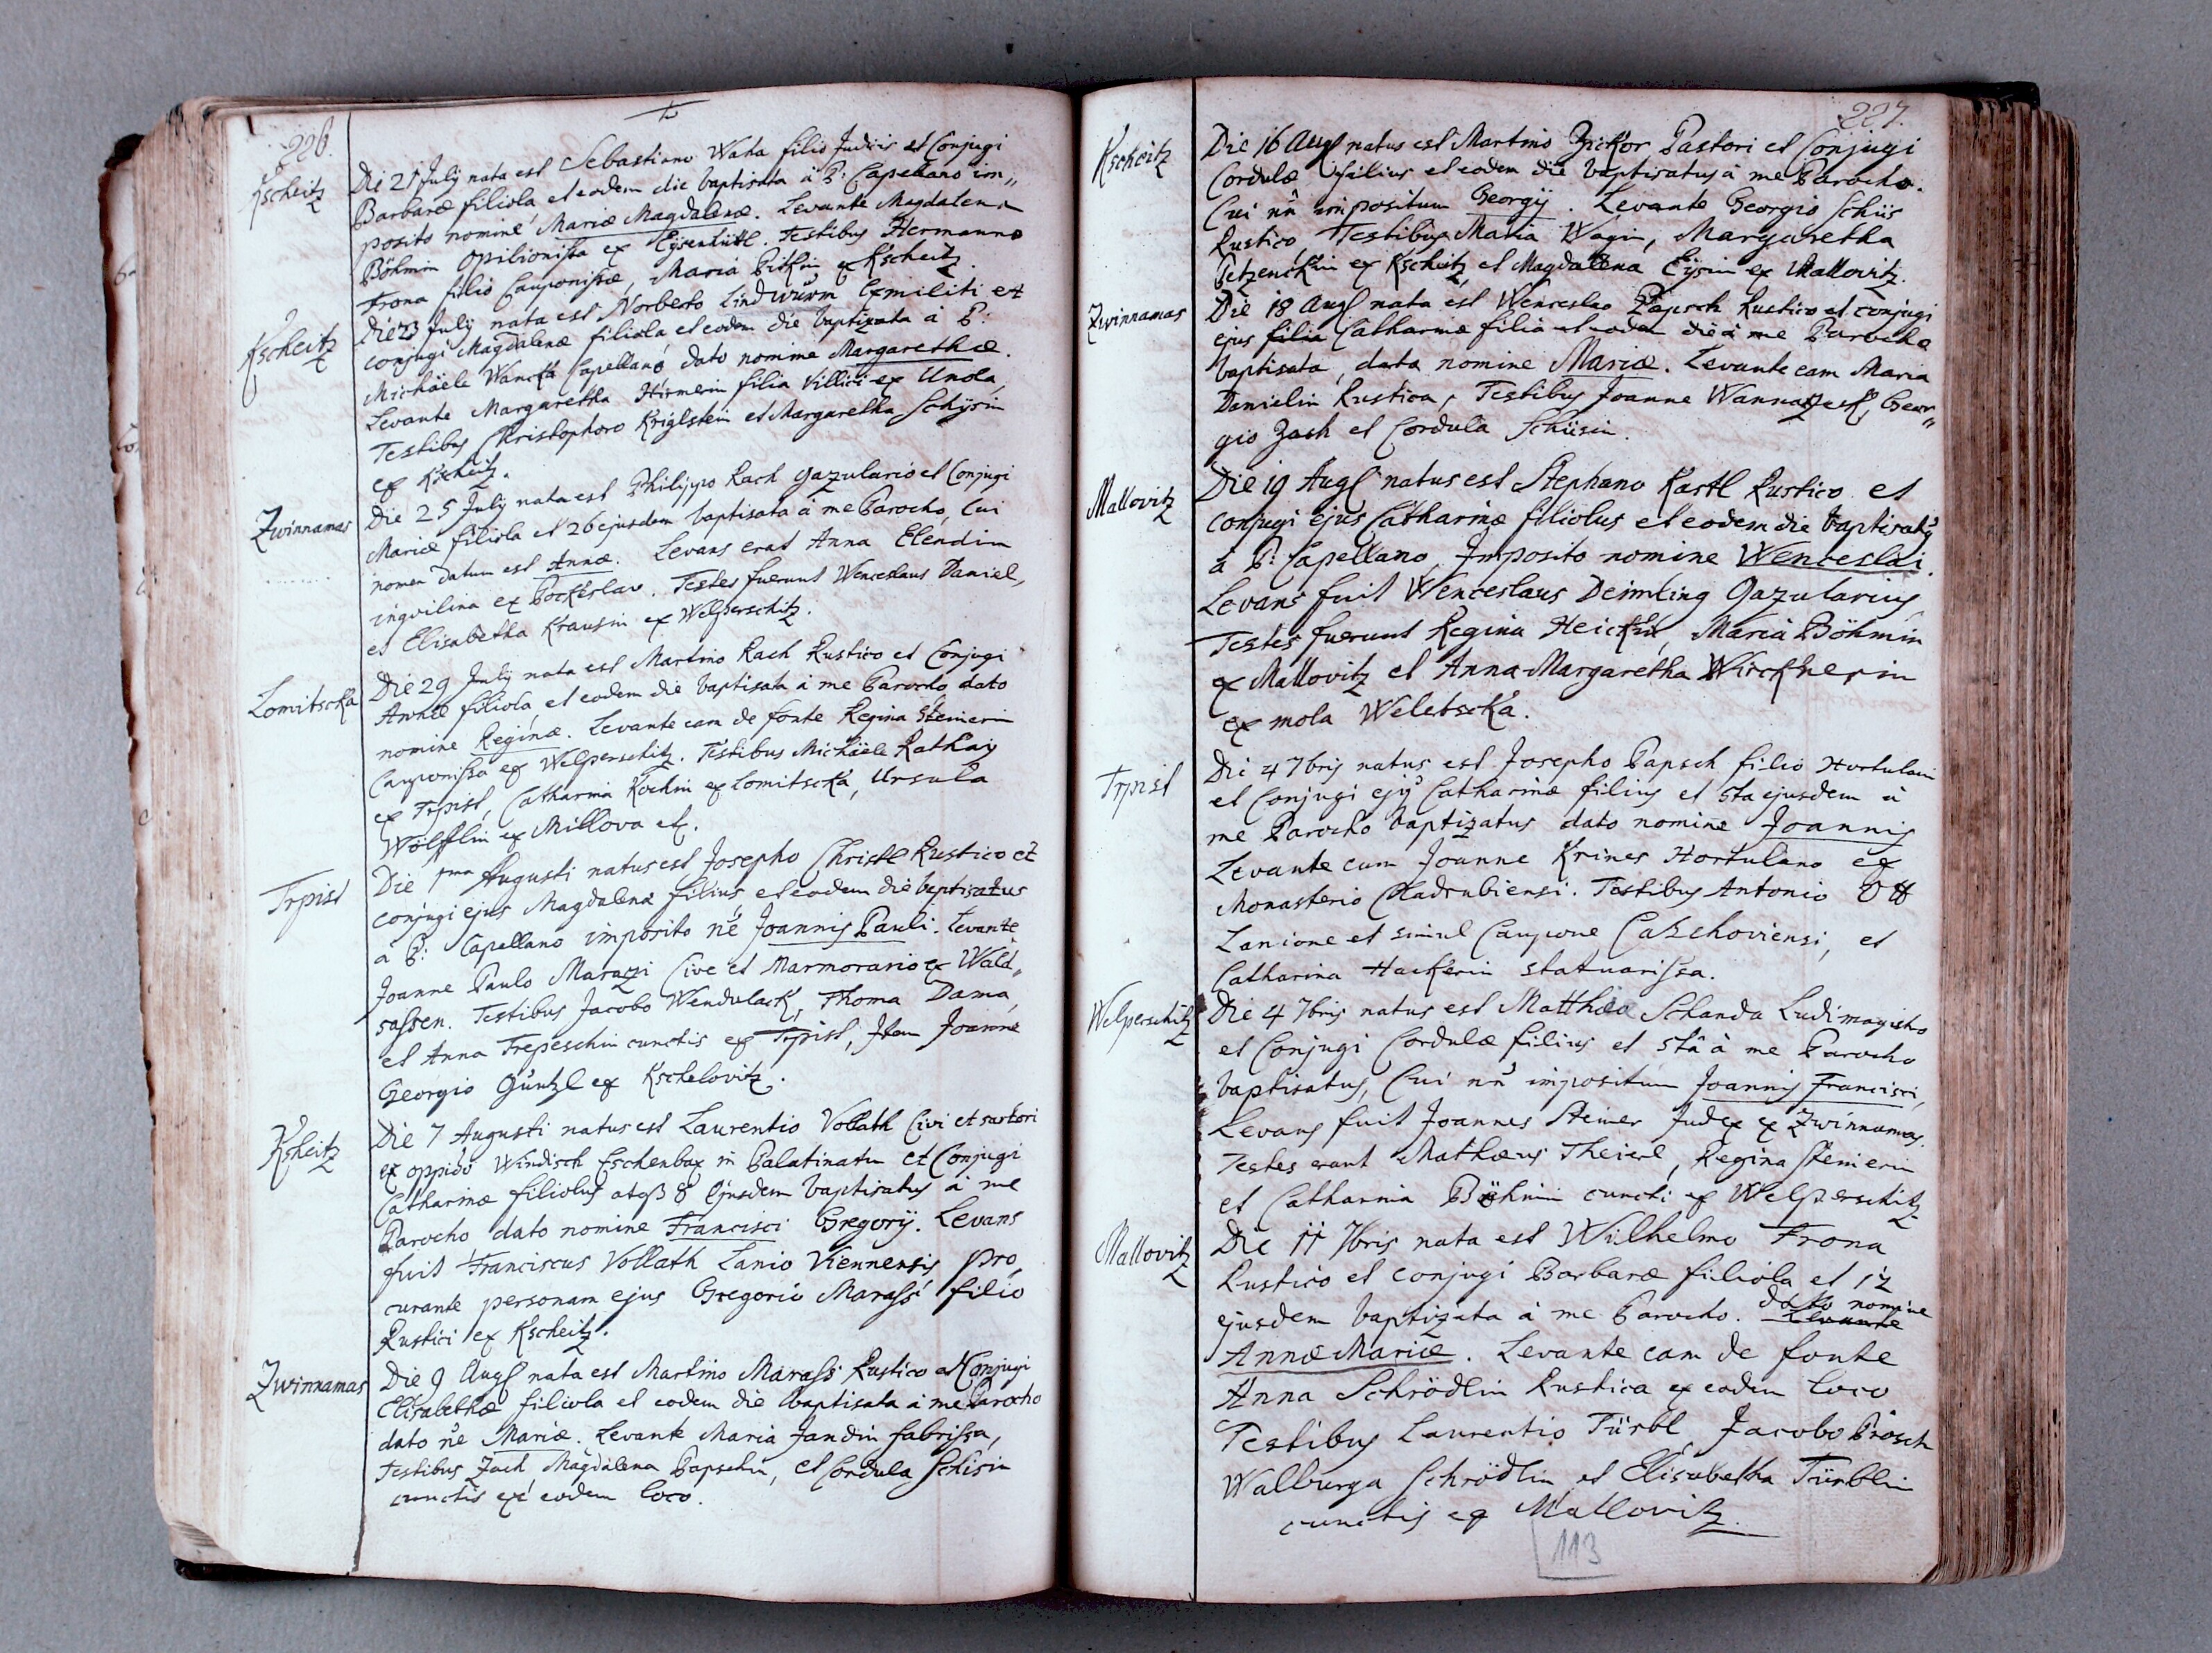 226.
Kscheitz
Die 21 July nata est Sebastiano Waha filio Judicis et Conjugi
Barbaræ filiola, et eodem die baptisata à P: Capellano im„
posito nomine Mariæ Magdalenæ. Levante Magdalena
Böhmin opilionissa ex Eysenhüttl. Testibus Hermanno
Frona filio Cauponissæ, Maria Pitkin ex Kscheitz.
Kscheitz
Die 23 July nata est Norberto Lindwurm Exmiliti et
conjugi Magdalenæ filiola, et eodem die baptizata à P:
Michäele Wancka Capellano dato nomine Margarethæ.
Levante Margaretha Hirmerin filia Villici ex Unola,
Testibus Christophoro Kriglstein et Margaretha Schysin
ex Kscheitz.
Zwinnamas
Die 25 July nata est Philippo Rach Gazulario et Conjugi
Mariæ filiola et 26 ejusdem baptisata à me Parocho, Cui
nomen datum est Annæ. Levans erat Anna Elendin
inqvilina ex Pockeslav. Testes fuerunt Wenceslaus Daniel,
et Elisabetha Krausin ex Welperschitz.
Lomitscka
Die 29 July nata est Martino Rach Rustico et Conjugi
Annæ filiola, et eodem die baptisata à me Parocho, dato
nomine Reginæ. Levante eam de fonte Regina Steinerin
Cauponissa ex Welperschitz. Testibus Michäele Rathay
ex Trpist, Catharina Kochin ex Lomitscka, Ursula
Wölfflin ex Millova etc.
Trpist
Die 1ma Augusti natus est Josepho Christl Rustico et
conjugi ejus Magdalenæ filius, et eodem die baptisatus
à P: Capellano imposito ne Joannis Pauli. Levante
Joanne Paulo Marazi Cive et Marmorario ex Wald„
sassen. Testibus Jacobo Wendulack, Thoma Dama,
et Anna Trepeschin cunctis ex Trpist, Item Joanne
Georgio Güntzl ex Kschelovitz.
Ksheitz
Die 7 Augusti natus est Laurentio Vollath Civi et sartori
ex oppido Windisch Eschenbax in Palatinatu et Conjugi
Catharinæ filiolus atq 8 Ejusdem baptisatus à me
Parocho dato nomine Francisci Gregorij. Levans
fuit Franciscus Vollath Lanio Viennensis pro,
curante personam ejus Gregorio Marassi filio
Rustici ex Kscheitz.
Zwinnamas
Die 9 Aug nata est Martino Marass Rustico et Conjugi
Elisabethæ filiola et eodem die baptisata à me Parocho
dato ne Mariæ. Levante Maria Jandin fabrissa,
Testibus Zach Magdalena Papschin, et Cordula Schisin
cunctis ex eodem loco.
227.
Kscheitz
Die 16 Aug natus est Martino Zickor Pastori et Conjugi
Cordulæ filius et eodem die baptisatus à me Parocho.
Cui nn impositum Georgij. Levante Georgio Schüs
Rustico, Testibus Maria Wagin, Margaretha
Petzenckin ex Kscheitz, et Magdalena Eysin ex Mallovitz.
Zwinnamas
Die 18 Aug nata est Wenceslao Papsch Rustico et conjugi
ejus filia Catharinæ filia et eodem die à me Parocho
baptisata, data nomine Mariæ. Levante eam Maria
Danielin Rustica, Testibus Joanne Wannatzeck, Geor„
gio Zach et Cordula Schüsin.
Mallovitz
Die 19 Aug natus est Stephano Kastl Rustico et
conjugi ejus Catharinæ filiolus et eodem die baptisatus
à P: Capellano, Imposito nomine Wenceslai.
Levans fuit Wenceslaus Deimling Gazularius,
Testes fuerunt Regina Heickin, Maria Böhmin
ex Mallovitz et Anna Margaretha Wircknerin
ex mola Weletscka.
Trpist
Die 4 7bris natus est Josepho Papsch filio Hortulani
et Conjugi ejus Catharinæ filius et 5ta ejusdem à
me Parocho baptizatus dato nomine Joannis
Levante eum Joanne Kriner Hortulano ex
Monasterio Cladrubiensi. Testibus Antonio Ott
Lanione et simul Caupone Catschoviensi, et
Catharina Hackerin statuarissa.
Welperschitz
Die 4 7bris natus est Matthæo Schanda Ludimagistro
et Conjugi Cordulæ filius et 5tâ à me Parocho
baptisatus, Cui nn impositum Joannis Francisci,
Levans fuit Joannes Steiner Judex ex Zwinnamas.
Testes erant Mathæus Theierl, Regina Steinerin
et Catharina Böhmin cuncti ex Welperschitz
Mallovitz
Die 11 7bris nata est Wilhelmo Frona
Rustico et conjugi Barbaræ filiola et 12
ejusdem baptizata à me Parocho. Levante dato nomine
Annæ Mariæ. Levante eam de fonte
Anna Schrödlin Rustica ex eodem loco
Testibus Laurentio Türbl, Jacobo Prösch
Walburga Schrödlin, et Elisabetha Türblin
cunctis ex Mallovitz.
113